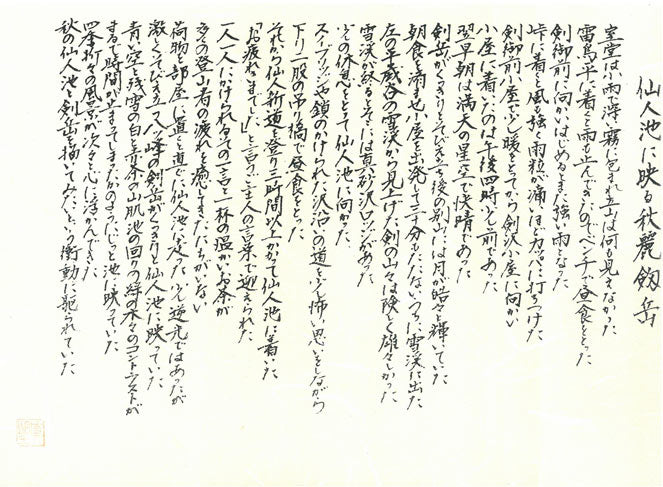 仙人池に映る秋麗剱岳
室堂は小雨で薄霧に包まれ立山は何も見えなかった
雷鳥平に着くと雨も止んできたのでベンチで昼食をとった
剣御前に向かいはじめるとまた強い雨となった
峠に着くと風も強く雨粒が痛いほどカッパに打ちつけた
剣御前小屋で少し暖をとってから剣沢小屋に向かい
小屋に着いたのは午後四時少し前であった
翌早朝は満天の星空で快晴であった
剣岳がくっきりとそびえ後の別山には月が皓々と輝いていた
朝食を済ませ小屋を出発して三十分もたたないうちに雪渓に出た
左の平蔵谷の雪渓から見上げた剣の山々は険しく雄々しかった
雪渓が終るところには真砂沢ロッジがあった
小その休息をとって仙人池に向かった
スノーブリッジや鎖のかけられた沢沿いの道を少し怖い思いをしながら
下り二股の吊り橋で昼食をとった
それから仙人新道を登り三時間以上かかって仙人池に着いた
「お疲れさまでした」と言うご主人の言葉で迎えられた
一人一人にかけられるその一言と一杯の温かいお茶が
多くの登山者の疲れを癒してきたにちがいない
荷物を部屋に置くと直ぐに仙人池に走った 少し逆光ではあったが
激しくそびえ立つ八ツ峰の剣岳がくっきりと仙人池に映っていた
青い空と残雪の白と立木の山肌池の回りの緑の木々のコントラストが
まるで時間が止まってしまったかのようにじっと池に映っていた
四季折々の風景が次々と心に浮かんできた
秋の仙人池と剣岳を描いてみたいという衝動に駆られていた